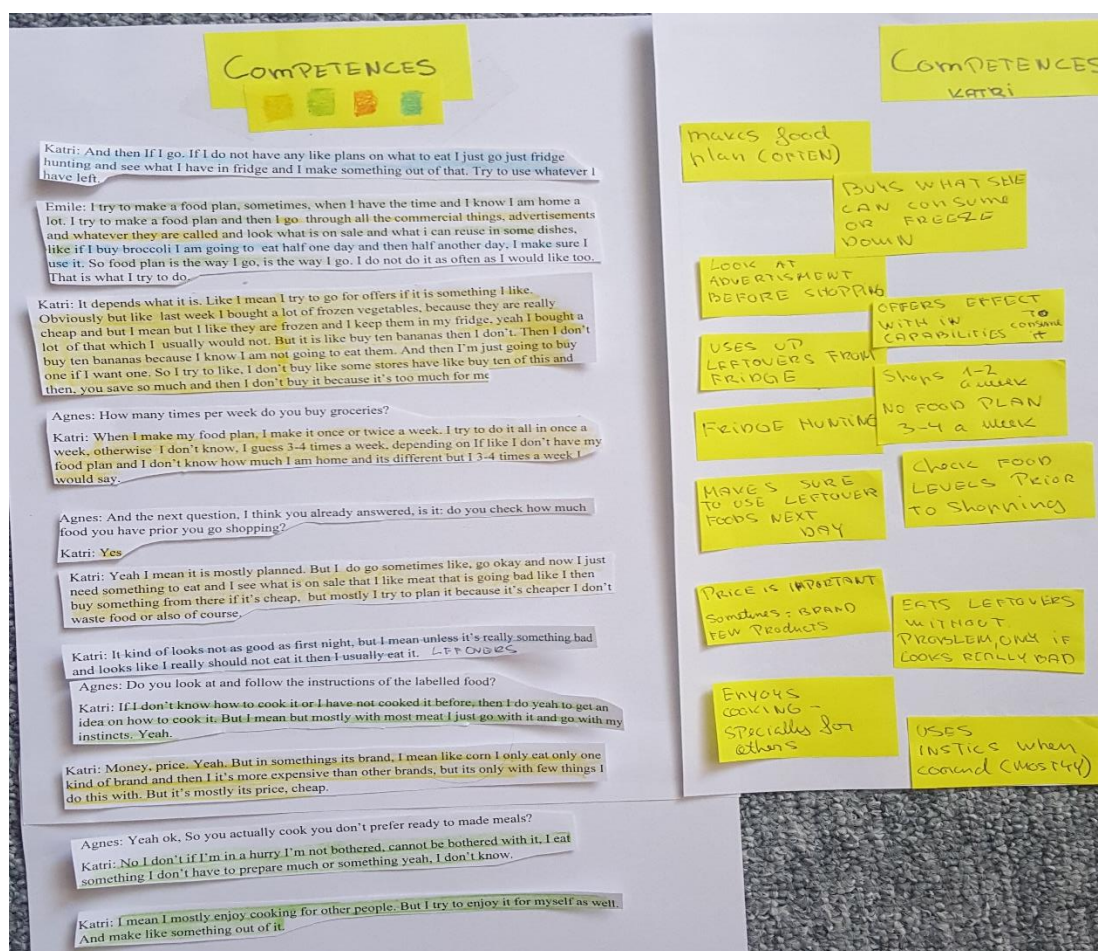 COMPETENCES
Katri: And then If I go. If I do not have any like plans on what to eat I just go just fridge
hunting and see what I have in fridge and I make something out of that. Try to use whatever I
have left.
Emile: I try to make a food plan, sometimes, when I have the time and I know I am home a
lot. I try to make a food plan and then I go through all the commercial things, advertisements
and whatever they are called and look what is on sale and what i can reuse in some dishes,
like if I buy broccoli I am going to eat half one day and then half another day, I make sure I
use it. So food plan is the way I go, is the way I go. I do not do it as often as I would like too.
That is what I try to do.
Katri: It depends what it is. Like I mean I try to go for offers if it is something I like.
Obviously but like last week I bought a lot of frozen vegetables, because they are really
cheap and but I mean but I like they are frozen and I keep them in my fridge, yeah I bought a
lot of that which I usually would not. But it is like buy ten bananas then I don't. Then I don't
buy ten bananas because I know I am not going to eat them. And then I'm just going to buy
one if I want one. So I try to like, I don't buy like some stores have like buy ten of this and
then, you save so much and then I don't buy it because it's too much for me
Agnes: How many times per week do you buy groceries?
Katri: When I make my food plan, I make it once or twice a week. I try to do it all in once a
week, otherwise I don't know, I guess 3-4 times a week, depending on If like I don't have my
food plan and I don't know how much I am home and its different but I 3-4 times a week I
would say.
Agnes: And the next question, I think you already answered, is it: do you check how much
food you have prior you go shopping?
Katri: Yes
Katri: Yeah I mean it is mostly planned. But I do go sometimes like, go okay and now I just
need something to eat and I see what is on sale that I like meat that is going bad like I then
buy something from there if it's cheap, but mostly I try to plan it because it's cheaper I don't
waste food or also of course,
Katri: It kind of looks not as good as first night, but I mean unless it's really something bad
and looks like I really should not eat it then I usually eat it. LEFTOVERS
Agnes: Do you look at and follow the instructions of the labelled food?
Katri: If I don't know how to cook it or I have not cooked it before, then I do yeah to get an
idea on how to cook it. But I mean but mostly with most meat I just go with it and go with my
instincts. Yeah.
Katri: Money, price. Yeah. But in somethings its brand, I mean like corn I only eat only one
kind of brand and then I it's more expensive than other brands, but its only with few things I
do this with. But it's mostly its price, cheap.
Agnes: Yeah ok, So you actually cook you don't prefer ready to made meals?
Katri: No I don't if I'm in a hurry I'm not bothered, cannot be bothered with it, I eat
something I don't have to prepare much or something yeah, I don't know.
Katri: I mean I mostly enjoy cooking for other people. But I try to enjoy it for myself as well.
And make like something out of it.
COMPETENCES
KATRI
makes food
plan (OFTEN)
BUYS WHAT SHE
CAN CONSUME
OR FREEZE
DOWN
LOOK AT
ADVERTISMENT
BEFORE SHOPPING
OFFERS EFFECT
WITH IN
CAPABILITIES TO consume it
USES UP
LEFTOVERS FROM
FRIDGE
Shops 1-2
a week
NO FOOD PLAN
3-4 a week
FRIDGE HUNTING
CHECK FOOD
LEVELS PRIOR
TO Shopping
MAKES SURE
TO USE LEFTOVER
FOODS NEXT
DAY
PRICE IS IMPORTANT
Sometimes = BRAND
FEW Products
EATS LEFTOVERS
WITHOUT
PROBLEM, ONLY IF
LOOKS REALLY BAD
ENYOYS
COOKING -
Specially for
others
USES
INSTICS when
(MOSTLY)